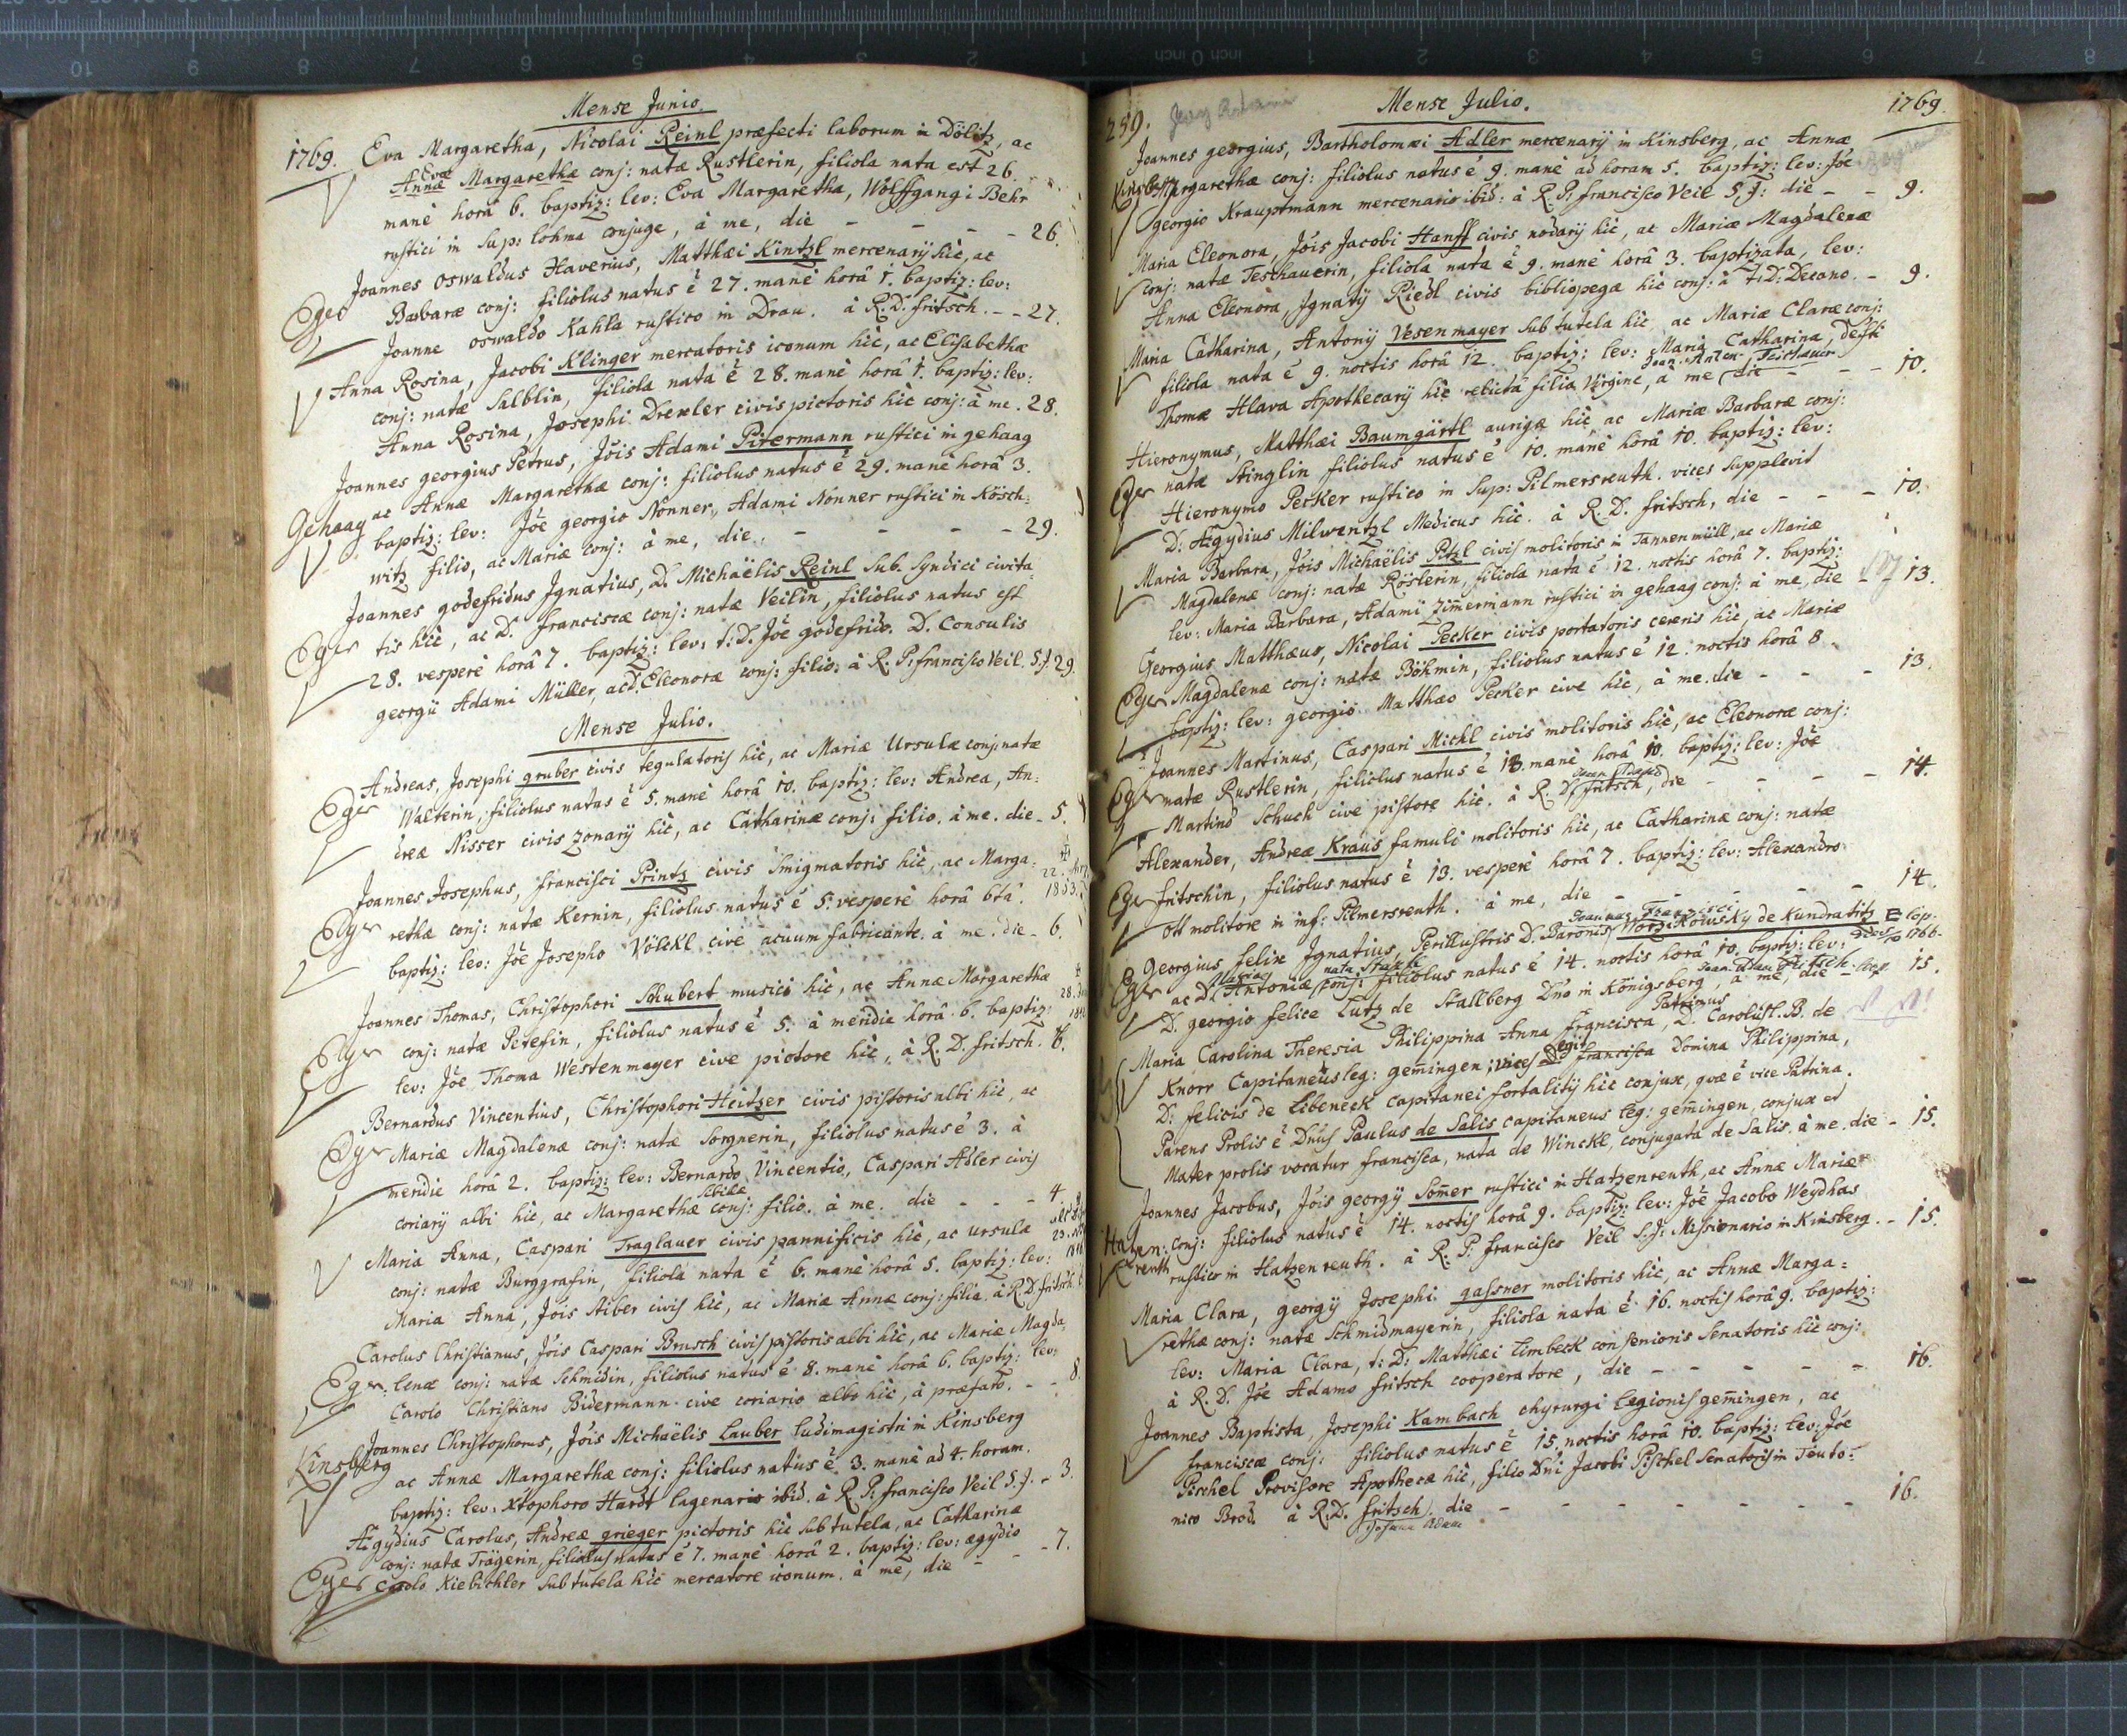 Mense Junio.
1769. Eva Margaretha, Nicolai Reinl præfecti laborum in Dölitz, ac
Evæ
Annæ Margarethæ conj: natæ Rustlerin, filiola nata est 26.
manè horâ 6. baptiz: lev: Eva Margaretha, Wolffgangi Behr
rustici in Sup: lohma conjuge, à me, die - - - - 26.
Joannes Oswaldus Xaverius, Matthæi Kintzl mercenarij hic, ac
Eger Barbaræ conj: filiolus natus ẽ 27. manè horâ 1. baptiz: lev:
Joanne Oswaldo Kahla rustico in Drau. à R.D. fritsch. - - 27.
Anna Rosina, Jacobi Klinger mercatoris iconum hic, ac Elisabethæ
conj: natæ Salblin, filiola nata ẽ 28. manè horâ 1. baptiz: lev:
Anna Rosina, Josephi Drexler civis pictoris hic conj: à me. 28.
Joannes georgius Petrus, Jõis Adami Pitermann rustici in gehaag
Gehaag ac Annæ Margarethæ conj: filiolus natus ẽ 29. manè horâ 3.
baptiz: lev: Jõe georgio Nonner, Adami Nonner rustici in Kösch:
witz filio, ac Mariæ conj: à me, die. - - - - 29.
Joannes godefridus Ignatius, D. Michaëlis Reinl Sub. Syndici civita:
Eger tis hic, ac D. franciscæ conj: natæ Veilin, filiolus natus est
28. vesperè horâ 7. baptiz: lev: t: D. Jõe godefrido. D. Consulis
georgii Adami Müller, ac d. Eleonoræ conj: filio; à R. P. francisco Veil. S. J. 29.
Mense Julio.
Andreas, Josephi gruber civis tegulatoris hic, ac Mariæ Ursulæ conj: natæ
Eger Walterin, filiolus natus ẽ 5. manè horâ 10. baptiz: lev: Andrea, An:
dreæ Nisser civis zonarij hic, ac Catharinæ conj: filio. à me. die - 5.
Joannes Josephus, francisci Printz civis Smigmatoris hic, ac Marga:
Eger rethæ conj: natæ Kernin, filiolus natus ẽ 5. vesperè horâ 6tâ.
baptiz: lev: Jõe Josepho Völckl cive acuum fabricante. à me. die - 6.
Joannes Thomas, Christophori Schubert musici hic, ac Annæ Margarethæ
Eger conj: natæ Peresin, filiolus natus ẽ 5. à meridie horâ 6. baptiz:
lev: Jõe Thoma Westenmayer cive pictore hic, à R. D. fritsch. 6.
Bernardus Vincentius, Christophori Heitzer civis pistoris albi hic, ac
Eger Mariæ Magdalenæ conj: natæ Sorgnerin, filiolus natus ẽ 3. à
meridie horâ 2. baptiz: lev: Bernardo Vincentio, Caspari Adler civis
Sibilæ
coriarij albi hic, ac Margarethæ conj: filio. à me. die - - - 4.
Maria Anna, Caspari Traglauer civis pannificis hic, ac Ursulæ
conj: natæ Burggrafin, filiola nata ẽ 6. manè horâ 5. baptiz: lev:
Maria Anna, Jõis Stiber civis hic, ac Mariæ Annæ conj: filia. à R.D. fritsch
Carolus Christianus, Jõis Caspari Brusch civis pistoris albi hic, ac Mariæ Magda:
Eger. lenæ conj: natæ Schmidin, filiolus natus ẽ 8. manè horâ 6. baptiz: lev:
Carolo Christiano Bidermann cive coriario albo hic, à præfato. - - 8.
Joannes Christophorus, Jõis Michaëlis Lauber ludimagistri in Kinsberg
Kinsberg ac Annæ Margarethæ conj: filiolus natus ẽ 3. manè ad 4. horam.
baptiz: lev: Xtophoro Hardt lagenario ibid. à R. P. francisco Veil S. J. - 3.
Ægydius Carolus, Andreæ grieger pictoris hic sub tutela, ac Catharinæ
conj: natæ Trägerin, filiolus natus ẽ 7. manè horâ 2. baptiz: lev: ægydio
Eger Carolo Kiebichler sub tutela hic mercatore iconum. à me, die - - - 7.
259. Mense Julio. 1769.
Joannes georgius, Bartholomæi Adler mercenarij in Kinsberg, ac Annæ
Kinsberg Margarethæ conj: filiolus natus ẽ 9. manè ad horam 5. baptiz: lev: Jõe
georgio Krauptmann mercenario ibid: à R. P. francisco Veil S. J: die - - 9.
Maria Eleonora, Jõis Jacobi Hanff civis nodarij hic, ac Mariæ Magdalenæ
conj: natæ Teschauerin, filiola nata ẽ 9. manè horâ 3. baptizata, lev:
Anna Eleonora, Ignatij Riedl civis bibliopegæ hic conj: à t: D: Decano. - 9.
Maria Catharina, Antonij Vesenmayer sub tutela hic ac Mariæ Claræ conj:
filiola nata ẽ 9. noctis horâ 12. baptiz: lev: Maria Catharina, defti
Thomæ Hlava Apothecarij hic relicta filia Virgine, à me die - - - 10.
Hieronymus, Matthæi Baumgärtl aurigæ hic ac Mariæ Barbaræ conj:
Eger natæ Stinglin filiolus natus ẽ 10. manè horâ 10. baptiz: lev:
Hieronymo Pecker rustico in Sup: Pilmersreuth. vices supplevit
D: Ægydius Milwentzl Medicus hic. à R. D. fritsch, die - - - 10.
Maria Barbara, Jõis Michaëlis Pitzl civis molitoris in Tannenmüll, ac Mariæ
Magdalenæ conj: natæ Röslerin, filiola nata ẽ 12. noctis horâ 7. baptiz:
lev: Maria Barbara, Adami Zimermann rustici in gehaag conj: à me, die - - 13.
Georgius Matthæus, Nicolai Pecker civis portatoris cereris hic, ac Mariæ
Eger Magdalenæ conj: natæ Böhmin, filiolus natus ẽ 12. noctis horâ 8.
baptiz: lev: georgio Matthæo Pecker cive hic, à me. die - - - 13.
Joannes Martinus, Caspari Mickl civis molitoris hic, ac Eleonoræ conj:
Eger natæ Rustlerin, filiolus natus ẽ 13. manè horâ 10. baptiz: lev: Jõe
Martino Schuch cive pistore hic. à R. D. fritsch, die - - - - 14.
Alexander, Andreæ Kraus famuli molitoris hic, ac Catharinæ conj: natæ
Eger fritschin, filiolus natus ẽ 13. vesperè horâ 7. baptiz: lev: Alexandro
Ott molitore in inf: Pilmersreuth. à me, die - - - - - 14.
Joannes Francisci
Georgius felix Ignatius, Perillustris D. Baronis Worzikowsky de Kundratitz
Eger ac D. Antoniæ conj: filiolus natus ẽ 14. noctis horâ 10. baptiz: lev:
D. georgio felice Lutz de Stallberg Dno in Königsberg, à me, die - 15.
Patrinus
Maria Carolina Theresia Philippina Anna francisca, D. Carolus L. B. de
Knorr Capitaneus leg: gemingen; vices egit francisca Domina Philippina,
D: felicis de Libeneck capitanei fortalitij hic conjux, quæ ẽ vice Patrina.
Parens Prolis ẽ Dnus Paulus de Salis capitaneus leg: gemingen, conjux et
Mater prolis vocatur francisca, nata de Winckl, conjugata de Salis. à me. die - 15.
Joannes Jacobus, Jõis georgij Somer rustici in Hatzenreuth, ac Annæ Mariæ
Hatzen: conj: filiolus natus ẽ 14. noctis horâ 9. baptiz: lev: Jõe Jacobo Weydhas
reuth rustico in Hatzenreuth. à R. P. francisco Veil S. J: Missionario in Kinsberg. - 15.
Maria Clara, georgij Josephi gassner molitoris hic, ac Annæ Marga:
rethæ conj: natæ Schmidmayerin, filiola nata ẽ 16. noctis horâ 9. baptiz:
lev: Maria Clara, t: D: Matthæi Limbeck consenioris Senatoris hic conj:
à R. D. Jõe Adamo fritsch cooperatore, die - - - - - 16.
Joannes Baptista, Josephi Kambach chyrurgi legionis gemingen, ac
franciscæ conj: filiolus natus ẽ 15. noctis horâ 10. baptiz: lev: Jõe
Pischel Provisore Apothecæ hic, filio Dni Jacobi Pischel Senatoris in Teuto:
nico Brod. à R.D. fritsch, die - - - - - - - 16.